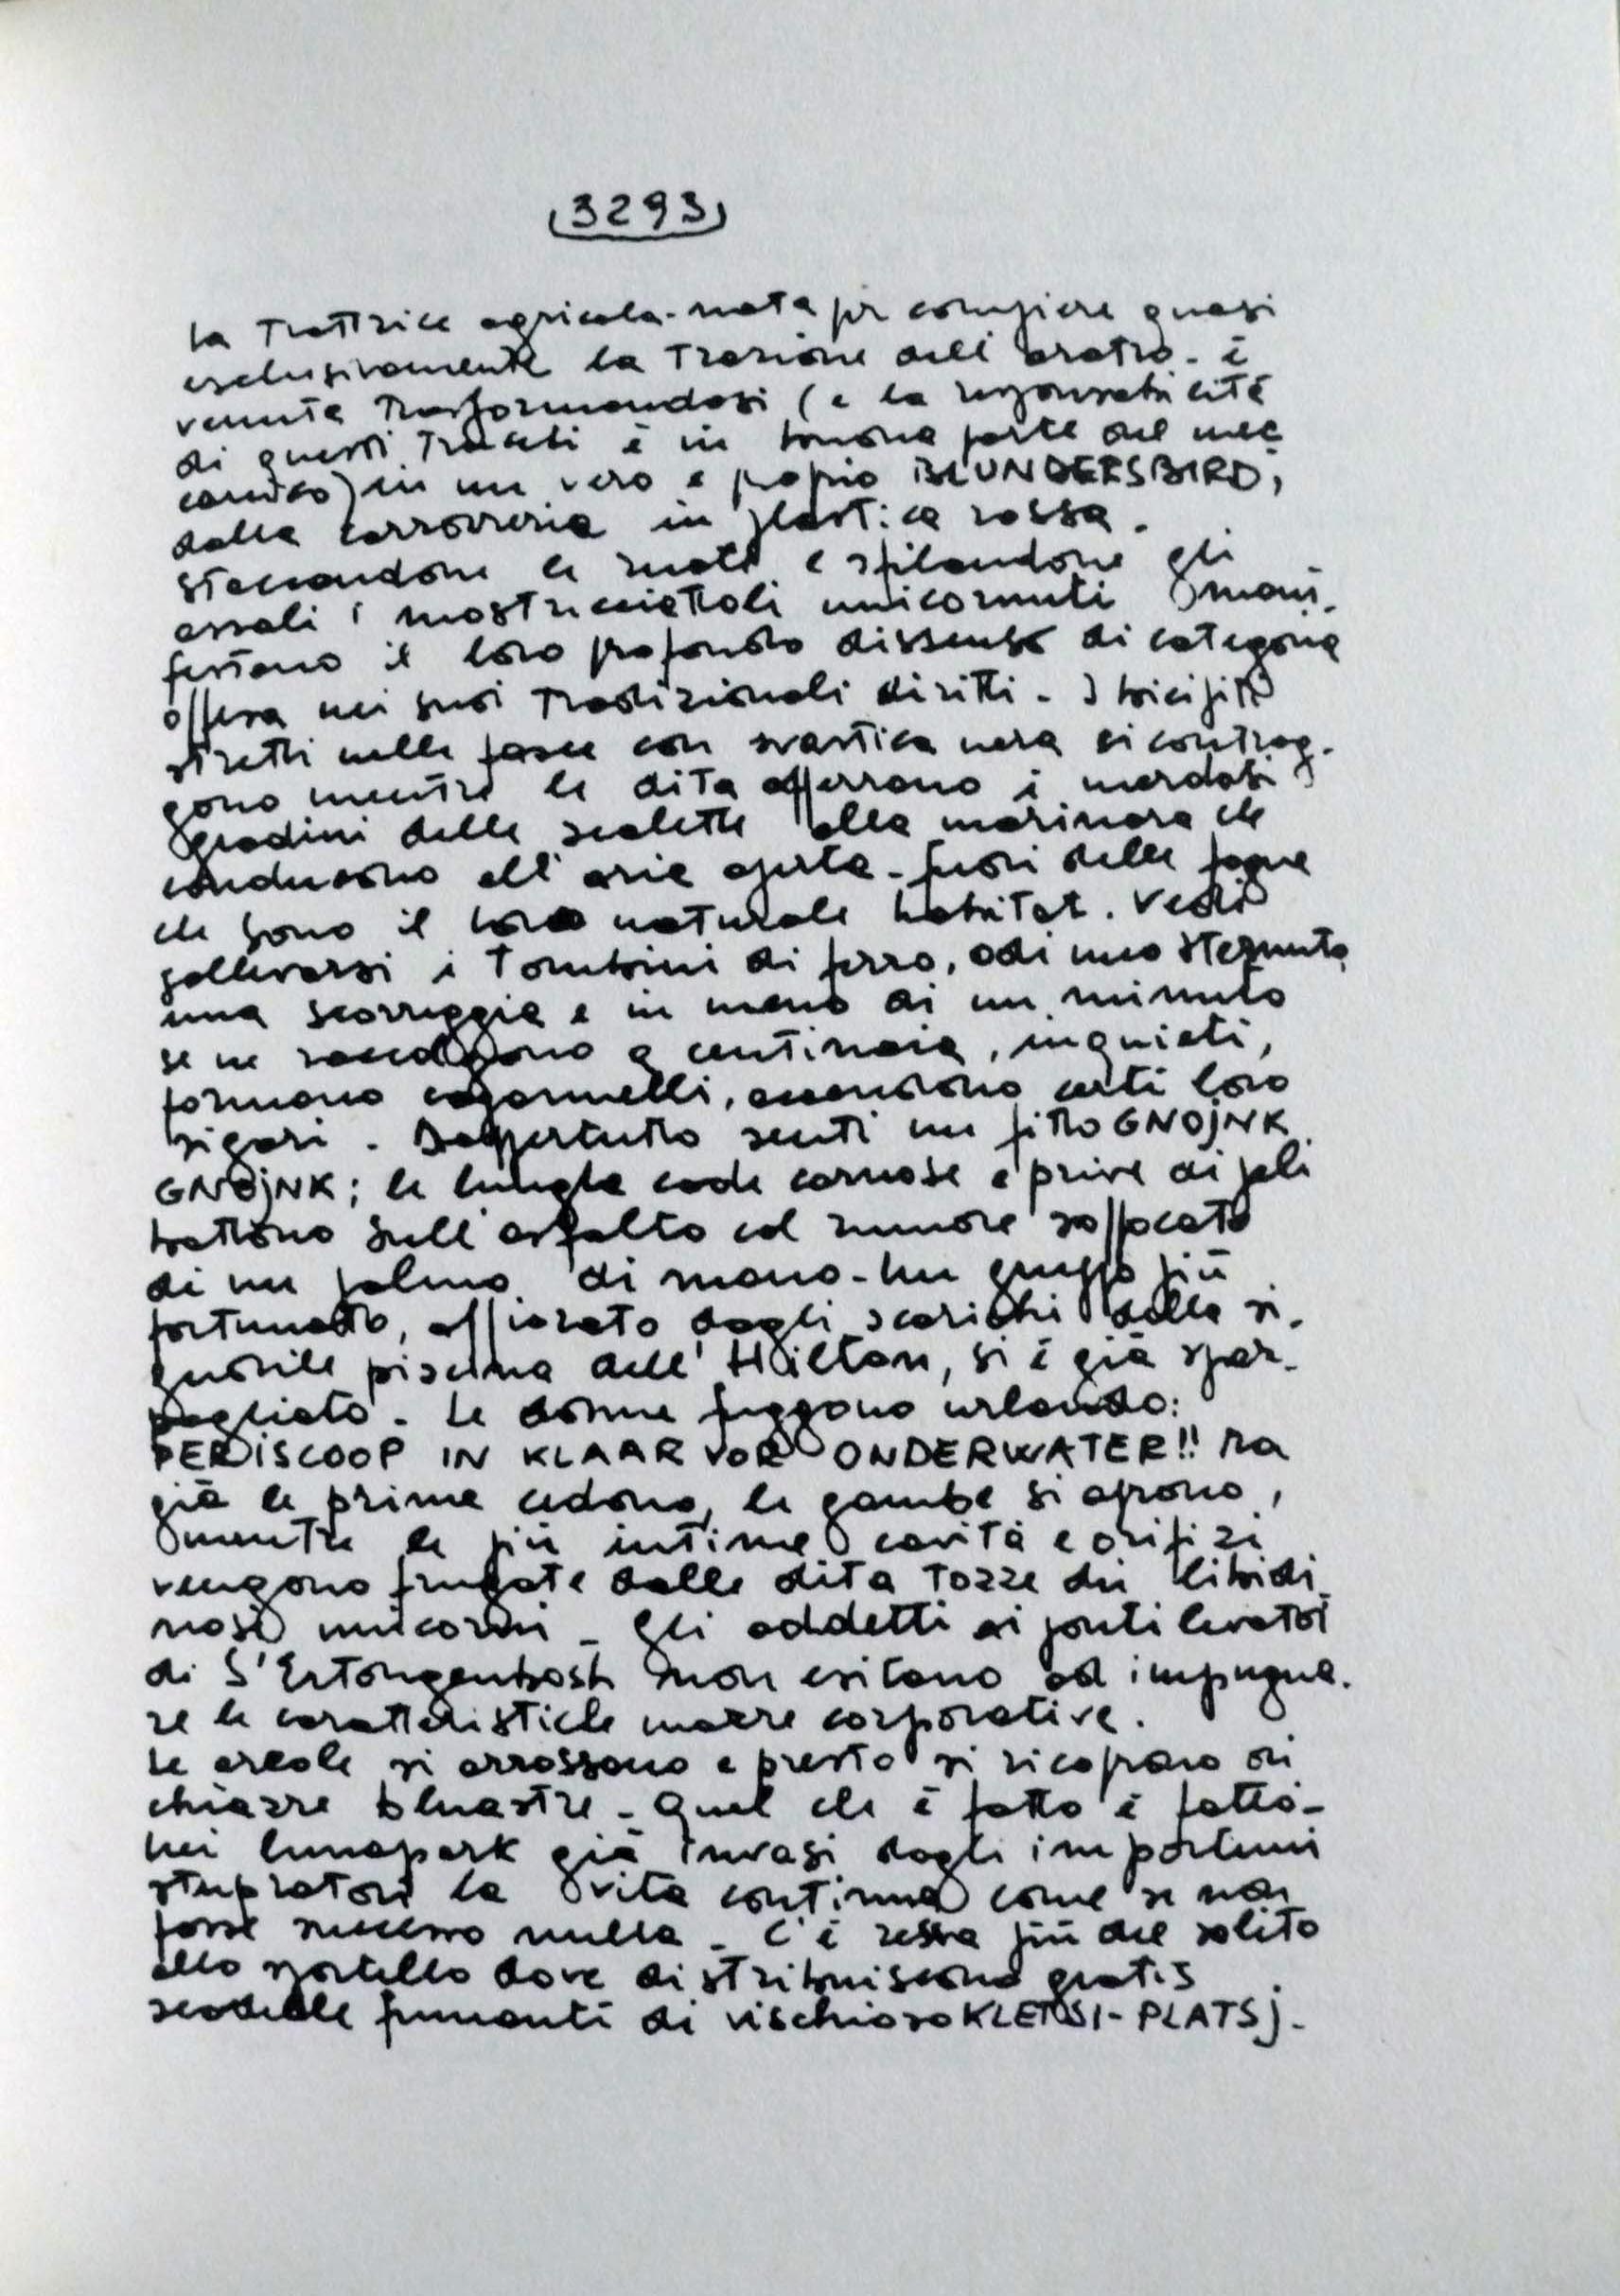 3293
La Trattrice agricola - nata per compiere quasi
esclusivamente la Trazione dell'aratro - è
venuta Trasformandosi (e la responsabilità
di questi è in buona parte del mec
canico) in un vero e proprio BLUNDERSBIRD,
dalla carrozzeria in plastica rossa.
Staccandone le ruote e sfilandone gli
assali i mostricciattoli unicornuti mani-
festano il loro profondo dissenso di categoria
offesa nei suoi Tradizionali diritti - I bicipiti
stretti nelle fasce con svastica nera si contrag-
gono mentre le dita afferrano i merdosi
gradini delle scalette alla marinara che
conducono all'aria aperta - fuori delle fogne
che sono il loro naturale habitat. Vedi
sollevarsi i Tombini di ferro, odi uno sternuto
una scorreggia e in meno di un minuto
se ne raccolgono a centinaia, inquieti,
formano capannelli, accendono certi loro
sigari - Dappertutto senti un fitto GNOJNK
GNOJNK; le lunghe code carnose e prive di peli
battono sull'asfalto col rumore soffocato
di un palmo di mano - Un gruppo più
fortunato, affiorato dagli scarichi della si-
gnorile piscina dell'Hilton, si è già spar-
pagliato - Le donne fuggono urlando:
PERISCOOP IN KLAAR VOR ONDERWATER!! Ma
già le prime cedono, le gambe si aprono,
mentre le più intime cavità e orifizi
vengono frugate dalle dita Tozze dei libidi-
nosi unicorni - Gli addetti ai ponti levatoi
di S'Ertongenbosh non esitano ad impugna-
re le caratteristiche mazze corporative.
Le areole si arrossano e presto si ricoprono di
chiazze bluastre - Quel che è fatto è fatto -
Nei lunapark già invasi dagli importuni
stupratori la vita continua come se non
fosse successo nulla - C'è ressa più del solito
allo sportello dove distribuiscono gratis
scodelle fumanti di vischioso KLETSI-PLATSJ -